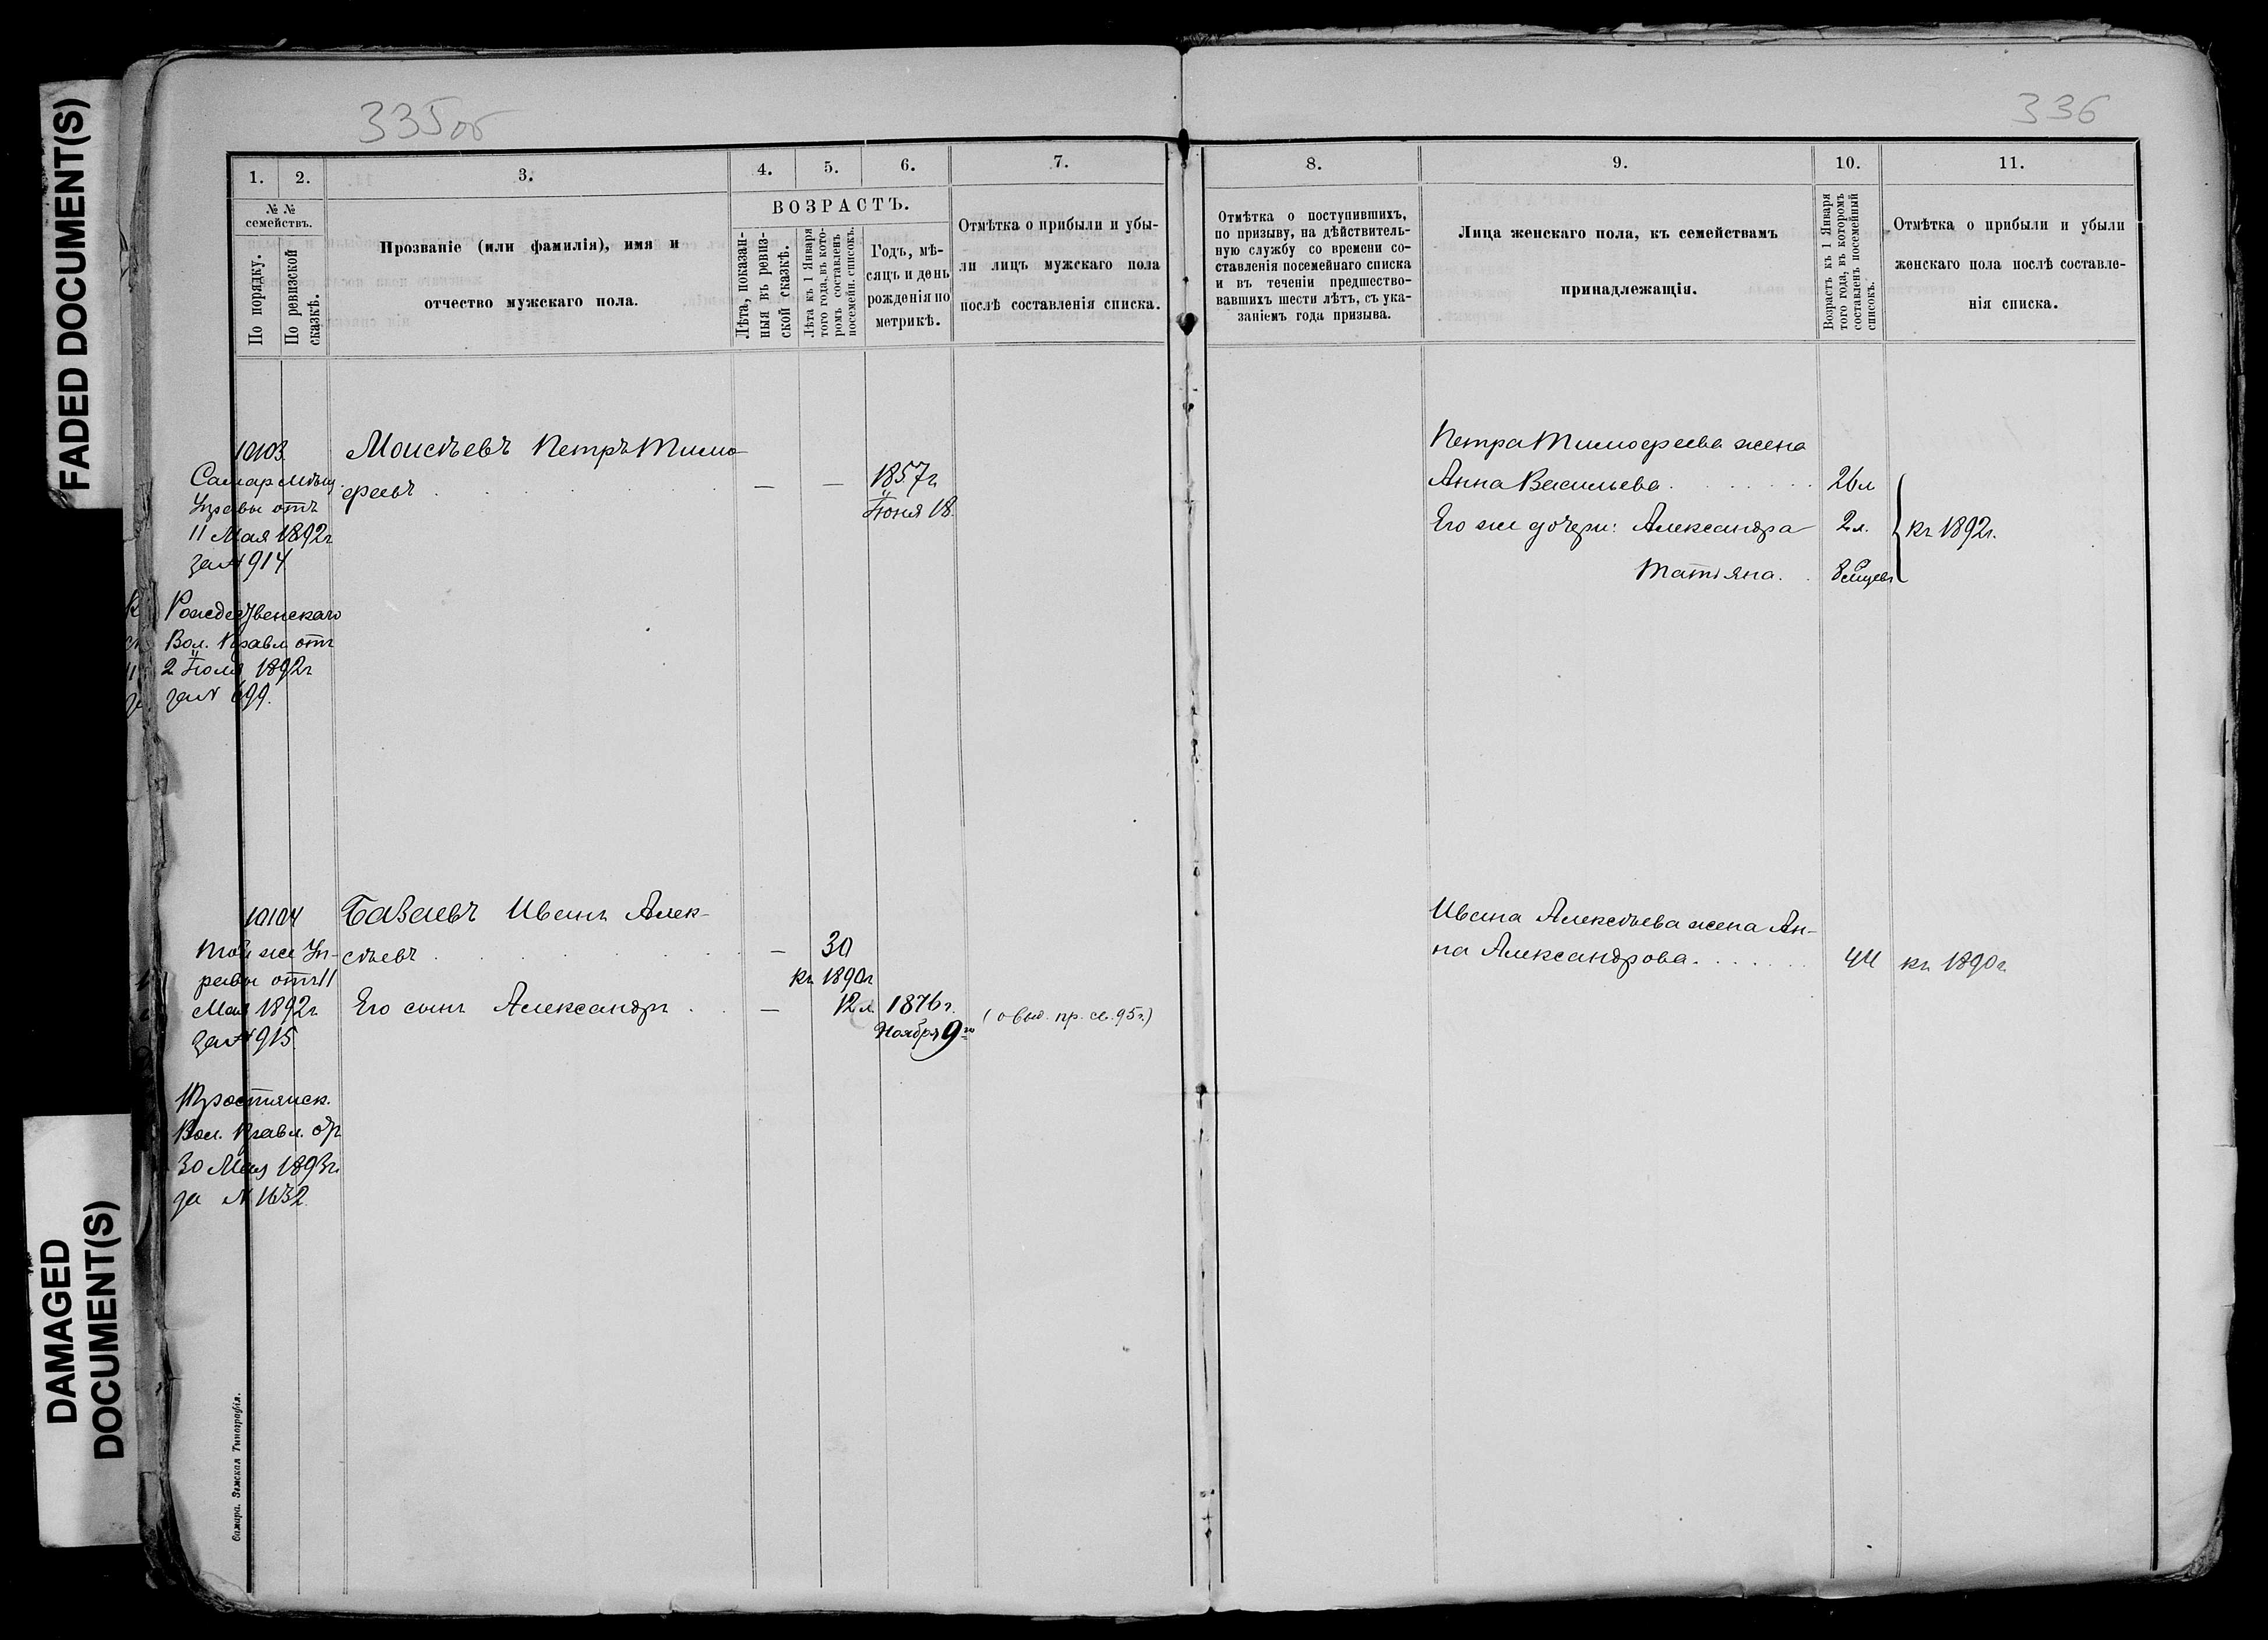 FADED DOCUMENT(S)
DAMAGED
DOCUMENT(S)
335об
1. 2. 3. 4. 5. 6. 7.
№ №
семействъ.
По порядку.
По ревизской
сказкѣ.
Прозваніе (или фамилія), имя и
отчество мужскаго пола.
ВОЗРАСТЪ.
Лѣта, показан-
ныя въ ревиз-
ской сказкѣ.
Лѣта къ 1 Января
того года, въ кото-
ромъ составленъ
посемейн. списокъ.
Годъ, мѣ-
сяцъ и день
рожденія по
метрикѣ.
Отмѣтка о прибыли и убы-
ли лицъ мужскаго пола
послѣ составленія списка.
10103
Самар Мѣщ.
Управы отъ
11 Мая 1892г
за № 914
Рождественскаго
Вол. Правл отъ
2 Іюля 1892г
за № 699.
Моисѣевъ Петръ Тимо-
феевъ
— —
1857г
Іюня 18.
10104
Той же Уп-
равы отъ 11
Мая 1892г
за № 915
Тростянск.
Вол. Правл. отъ
30 Мая 1893г.
за № 1632
Базаевъ Иванъ Алек-
сѣевъ
— 30
къ 1890г
Его сынъ Александръ
— 12 л. 1876г.
Ноября 9го
(о выд. пр. св. 95г.)
Самара. Земская Типографія.
336
8. 9. 10. 11.
Отмѣтка о поступившихъ,
по призыву, на дѣйствитель-
ную службу со времени со-
ставленія посемейнаго списка
и въ теченіи предшество-
вавшихъ шести лѣтъ, съ ука-
заніемъ года призыва.
Лица женскаго пола, къ семействамъ
принадлежащія.
Возрастъ къ 1 Января
того года, въ которомъ
составленъ посемейный
списокъ.
Отмѣтка о прибыли и убыли
женскаго пола послѣ составле-
нія списка.
Петра Тимофеева жена
Анна Васильева 26л
Его же дочери: Александра 2л. къ 1892г.
Татіяна.
Ивана Алексѣева жена Ан-
на Александрова. 44 къ 1890г